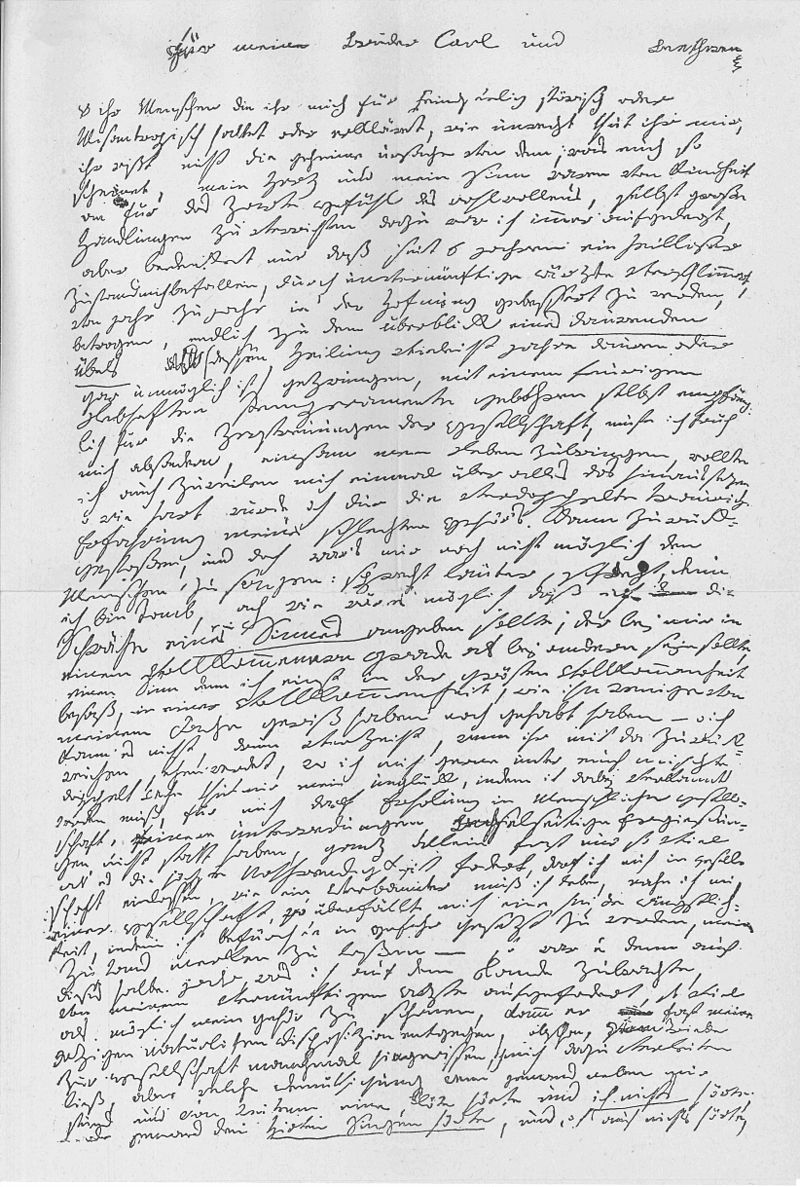 für meine Brüder Carl und Beethowen
O ihr Menschen die ihr mich für Feindseelig störisch oder
Misantropisch haltet oder erkläret, wie unrecht thut ihr mir,
ihr wißt nicht die geheime ursache von dem; was euch so
scheinet, mein Herz und mein Sinn waren von Kindheit
an für das Zarte Gefühl des wohlwollens, selbst große
Handlungen zu verrichten dazu war ich immer aufgelegt,
aber bedenket nur daß seit 6 jahren ein heilloser
Zustand mich befallen, durch unvernünftige ärzte verschlimmert,
von jahr zu jahr in der Hofnung gebessert zu werden,
betrogen, endlich zu dem überblick eines daurenden
Übels (dessen Heilung vieleicht jahre dauren oder
gar unmöglich ist) gezwungen, mit einem feurigen
Lebhaften Temperamente gebohren selbst empfäng-
lich für die Zerstreuungen der Gesellschaft, muste ich früh
mich absondern, einsam mein Leben zubringen, wollte
ich auch zuweilen mich einmal über alles das hinaussezen,
o wie hart wurde ich dur die verdoppelte traurige
Erfahrung meines schlechten Gehör's dann zurück-
gestoßen, und doch war's mir noch nicht möglich den
Menschen zu sagen: sprecht lauter, schreyt, denn
ich bin taub, ach wie wär es möglich daß ich die
Schwäche eines Sinnes angeben sollte; der bey mir in
einem vollkommenern Grade als bey andern seyn sollte,
einen Sinn denn ich einst in der grösten Vollkommenheit
besaß, in einer Vollkommenheit, wie ihn wenige von
meinem Fache gewiß haben noch gehabt haben – o ich
kann es nicht, drum verzeiht, wenn ihr mich da zurück-
weichen sehen werdet, wo ich mich gerne unter euch mischte,
doppelt Wehe thut mir mein unglück, indem ich dabey verkannt
werden muß, für mich darf Erholung in Menschlicher Gesell-
schaft, feinere unterredungen, Wechselseitige Ergießun-
gen nicht statt haben, ganz allein fast nur so viel
als es die höchste Nothwendigkeit fodert, darf ich mich in gesell-
schaft einlassen, wie ein Verbannter muß ich leben, nahe ich mich
einer Gesellschaft, so überfällt mich eine heiße ängstlich-
keit, indem ich befürchte in Gefahr gesezt zu werden, meinen
Zustand merken zu laßen – so war es denn auch
dieses halbe jahr, was ich auf dem Lande zubrachte,
von meinem Vernünftigen Arzte aufgefodert, so viel
als möglich mein Gehör zu schonen, kamm er fast meiner
jezigen natürlichen Disposizion entgegen, obschon, vom Triebe
zur Gesellschaft manchmal hingerissen, ich mich dazu verleiten
ließ, aber welche Demüthigung wenn jemand neben mir
stund und von weitem eine Flöte hörte und ich nichts hörte;
oder jemand den Hirten Singen hörte, und ich auch nichts hörte,